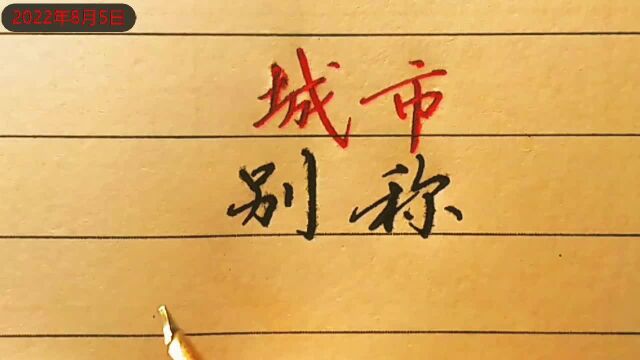 2022年8月5日
城市
别称